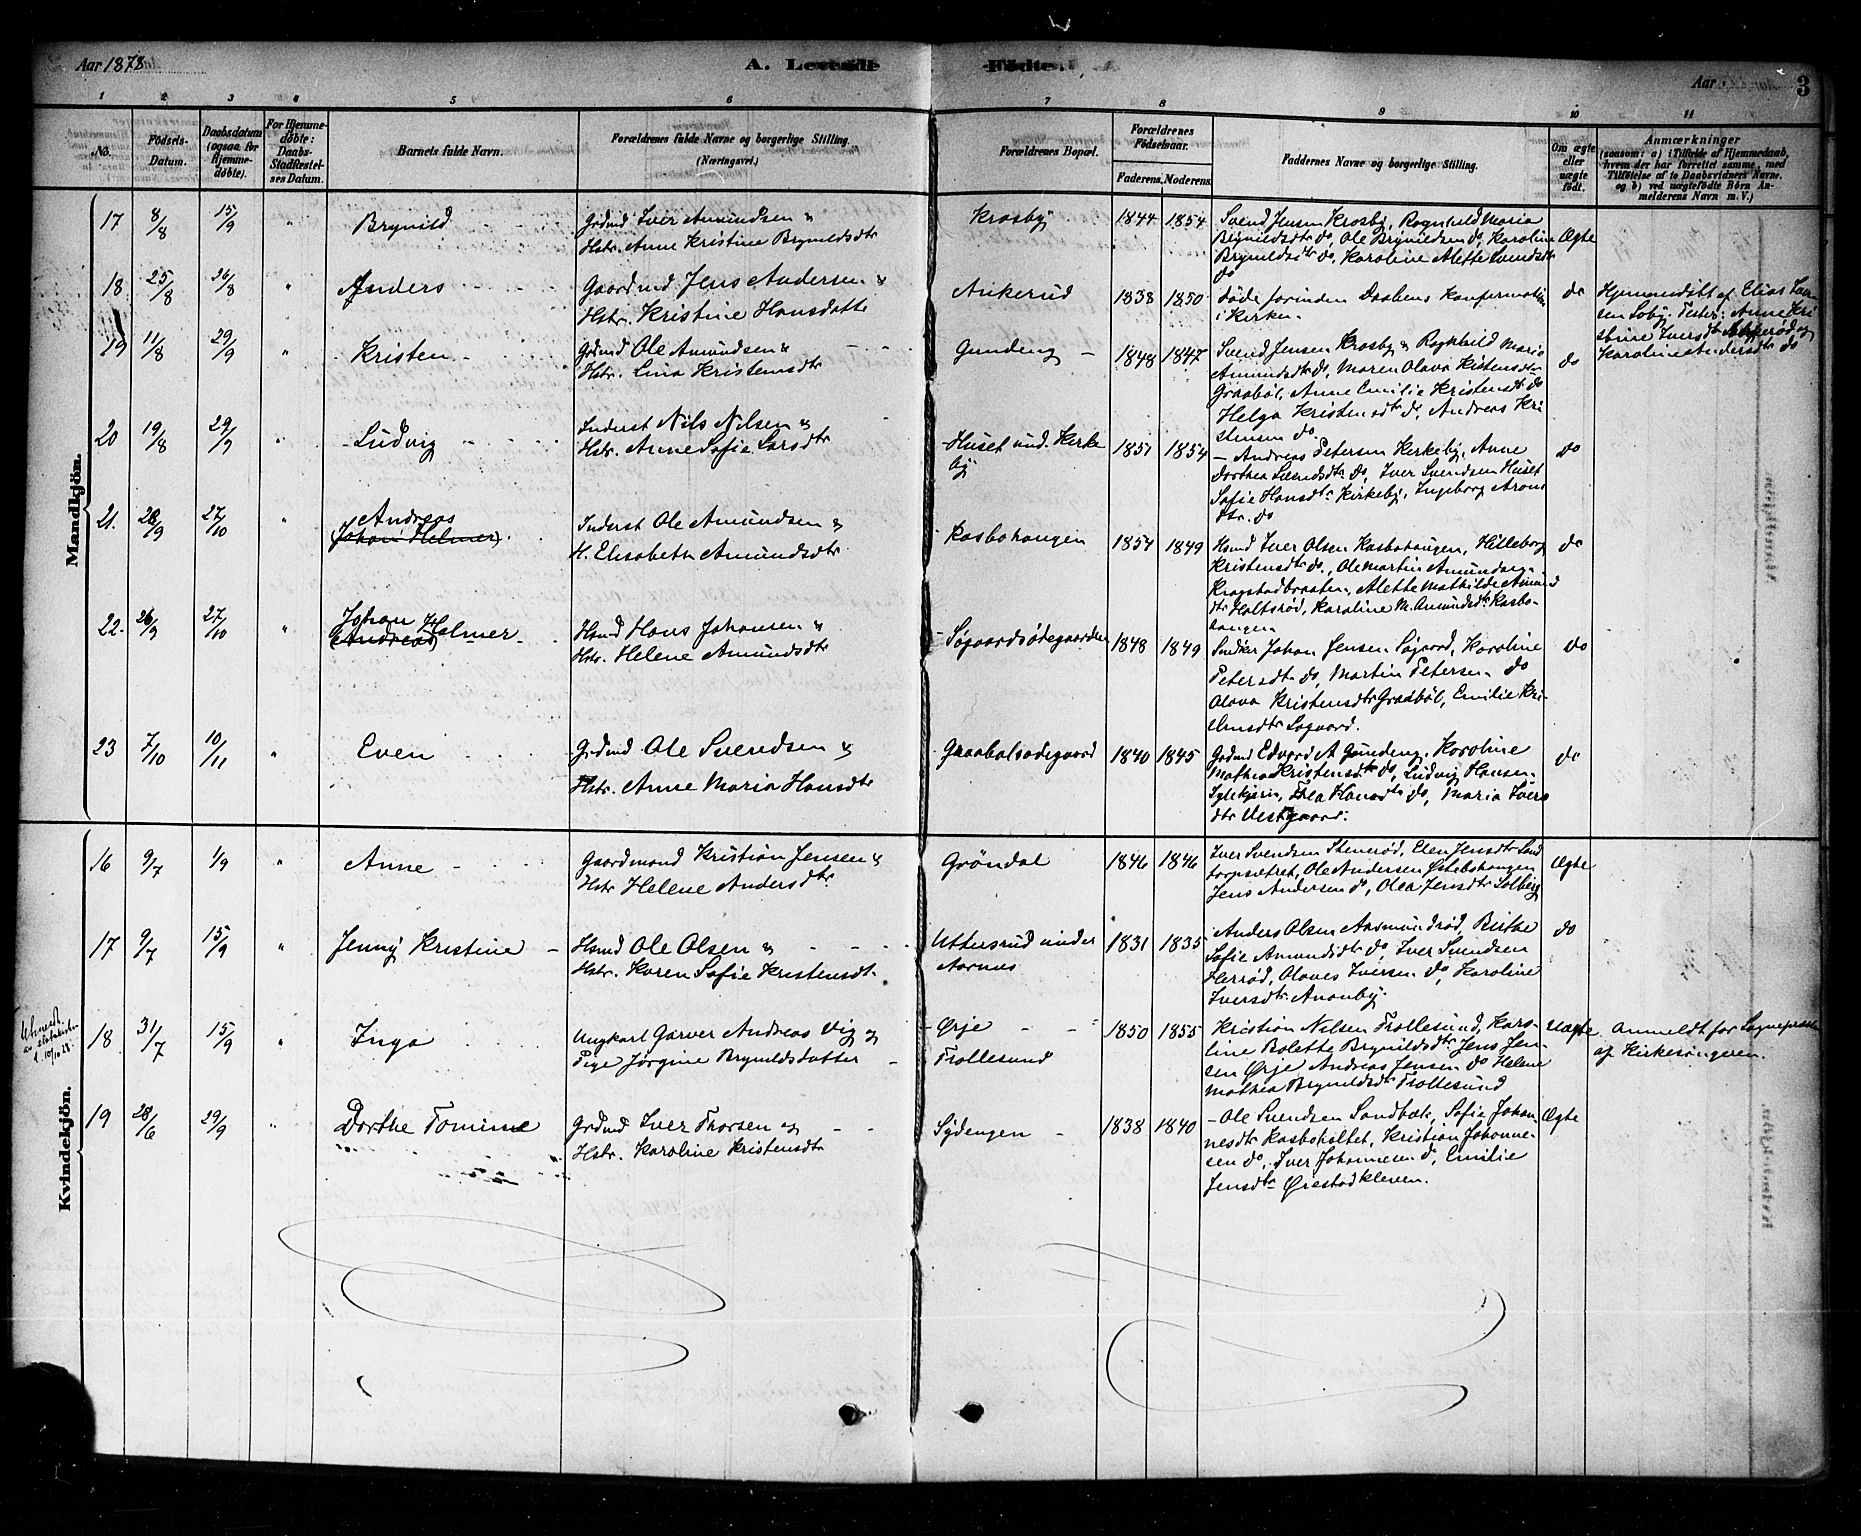 Aar 1878
A. Levende
Fødte.
Aar
3
1 2 3 4 5 6 7 8 9 10 11
No.
Fødsels-Datum.
Daabsdatum (ogsaa for Hjemmedøbte).
For Hjemmedøbte: Daabs-Stadfæstelses Datum.
Barnets fulde Navn.
Forældrenes fulde Navne og borgerlige Stilling. (Næringsvei.)
Forældrenes Bopæl.
Forældrenes Fødselsaar.
Faderens. Moderens.
Faddernes Navne og borgerlige Stilling.
Om ægte eller uægte født.
Anmærkninger
(saasom: a) i Tilfælde af Hjemmedaab, hvem der har forrettet samme, med Tilføielse af to Daabsvidners Navne. og b) ved uægtefødte Børn Anmelderens Navn m. V.)
Mandkjön.
17 8/8 15/9 " Brynild
Grdmd Iver Amundsen &
Hstr. Anne Kristine Brynildsdtr
Krosby 1844 1854
Svend Jensen Krosby, Ragnhild Maria
Brynildsdtr do, Ole Brynildsen do, Karoline
Brynildsdtr do, Karoline Alette Svendsdtr
do
Ægte
18 25/8 26/8 " Anders
Gaardmd Jens Andersen &
Hstr. Kristine Hansdatter
Ankerud 1838 1850
døde forinden Daabens Konfirmation
i Kirken.
do
Hjemmedøbt af Elias
19 11/8 29/9 " Kristen
Grdmd Ole Amundsen &
Hstr. Lina Kristensdtr
Gundeng 1848 1847
Svend Jensen Krosby & Ragnhild Maria
Amundsdtr do, Maren Olava Kristensdtr
Graabøl, Anne Emilie Kristensdtr do
Helga Kristensdtr do, Andreas Kri
stensen do
do
Karoline Andersdtr do
20 19/8 29/9 " Ludvig
Inderst Nils Nilsen &
Hstr. Anne Sofie Larsdtr
Huset und. Kirke
by
1851 1854
Andreas Petersen Kirkeby, Anne
Dorthea do, Iver Svendsen Huset
Sofie Hansdtr Kirkeby, Ingeborg Arons
dtr. do
do
21. 28/9 27/10 " Andreas
(Johan Helmer)
Inderst Ole Amundsen &
H. Elisabeth Amundsdtr
Kasbohaugen 1854 1849
Hsmd Iver Olsen Kasbohaugen, Hilleborg
Kristensdtr do, Ole Martin Amundsen
Krogstadbraaten, Alette Mathilde Amund
dtr Holtsrød, Karoline M. Amundsdtr Kasbo
haugen
do
22. 26/9 27/10 " Johan Helmer
(Andreas)
Hsmd Hans Johansen &
Hstr. Helene Amundsdtr
Søgaardsødegaarden 1848 1849
Snedker Johan Jensen Søgaard, Karoline
Petersdtr do, Martin Petersen do
Olava Kristensdtr Graabøl, Emilie Kri
stensdtr Søgaard.
do
23 7/10 10/11 " Even
Grdmd Ole Svendsen &
Hstr. Anne Maria Hansdtr
Graabølsødegaard 1840 1845
Grdmd Edvard A Gundeng, Karoline
Mathea Kristensdtr do, Ludvig Hansen
Thea Hansdtr do, Maria Ivers
dtr Vestgaard.
do
Kvindekjön.
16 9/7 1/9 " Anne
Gaardmand Kristian Jensen &
Hstr Helene Andersdtr
Grøndal 1846 1846
Iver Svendsen Stenerød, Elen Jensdtr Sand
torpsætret, Ole Andersen Østebøhaugen
Jens Andersen do, Olea Jensdtr Solberg
Ægte
17 9/7 15/9 " Jenny Kristine
Hsmd Ole Olsen &
Hstr. Karen Sofie Kristensdtr
Uttersrud under
Aarnæs
1831 1835
Anders Olsen Aasmundrød, Birthe
Sofie Amundsdtr do, Iver Svendsen
Herrød, Olaves Iversen do, Karoline
Iversdtr Ananby.
do
18 31/7 15/9 " Inga
Ungkarl Garver Andreas Vig og
Pige Jørgine Brynildsdatter
Ørje
Trollesund
1850 1855
Kristian Nilsen Trollesund, Karo-
line Bolette Brynildsdtr Jens Jen-
sen Ørje Andreas Jensen do Helene
Mathea Brynildsdtr Trollesund
Uægte
Anmeldt for Sognepræsten
af Kirkesangeren.
19 28/6 29/9 " Dorthe Tomine
Grdmd Iver Thorsen og
Hstr. Karoline Kristensdtr
Sydengen 1838 1840
Ole Svendsen Sandbæk, Sofie Johan
nesdtr Kasboholtet, Kristian Johanne-
sen do, Iver Johannesen do, Emilie
Jensdtr Ørestadkleven.
Ægte